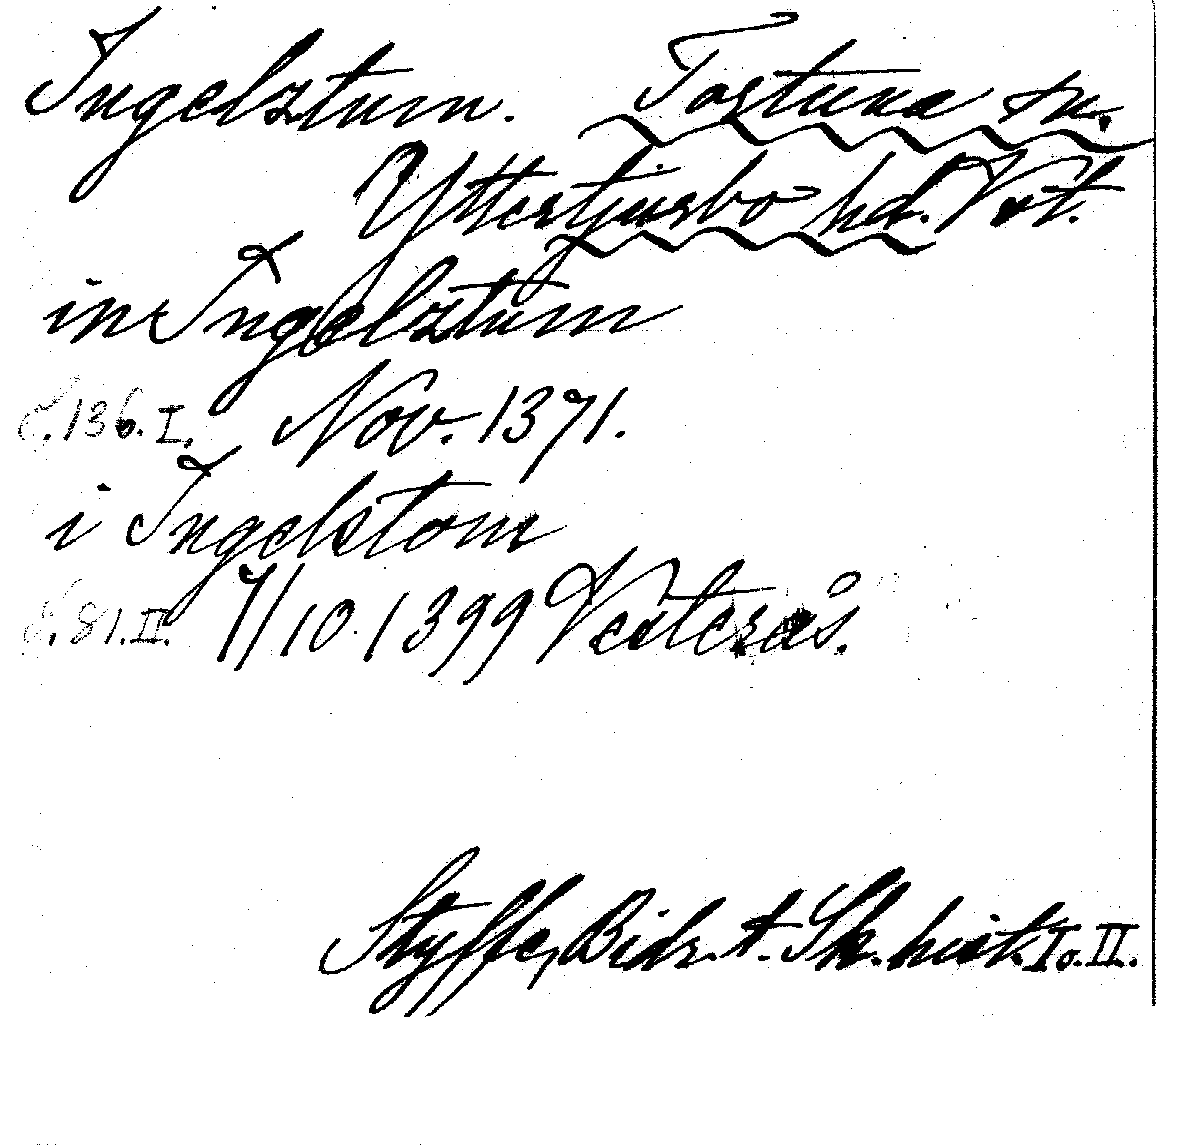 Ingelstum. Tortuna sn.
Yttertjurbo hd. Vst.
in Ingelztum
S. 136. I. Nov. 1371.
i Ingelstom
S. 81. II. 7/10 1399 Vesterås.
Styffe, Bidr. t. Sk. hist. I o. II.